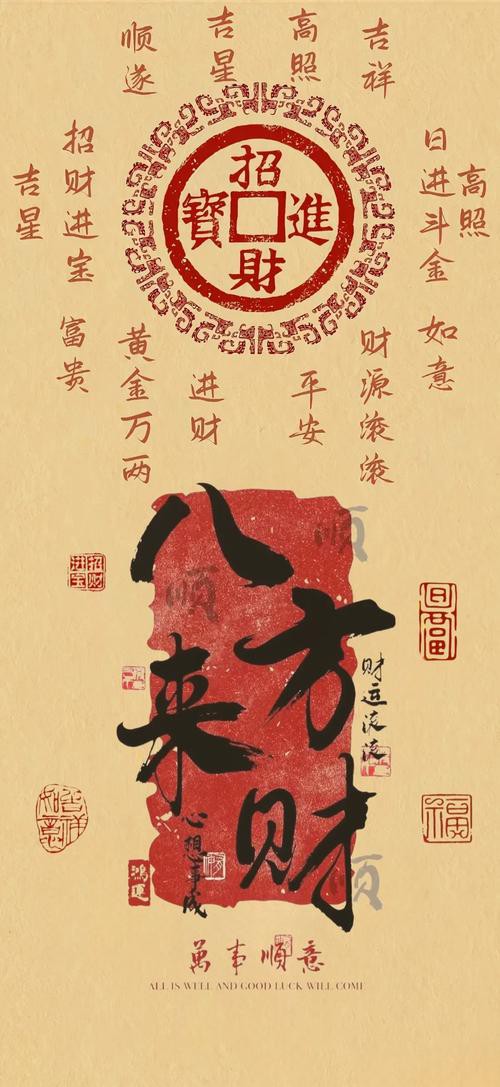 顺遂
吉星
高照
吉祥
招财进宝
吉星
日进斗金
高照
招
進
寶
財
富贵
黄金万两
进财
平安
财源滚滚
如意
八方来财
顺
顺
顺
招财进宝
财运滚滚
心想事成
吉祥如意
福
鸿运
萬事順意
ALL IS WELL AND GOOD LUCK WILL COME